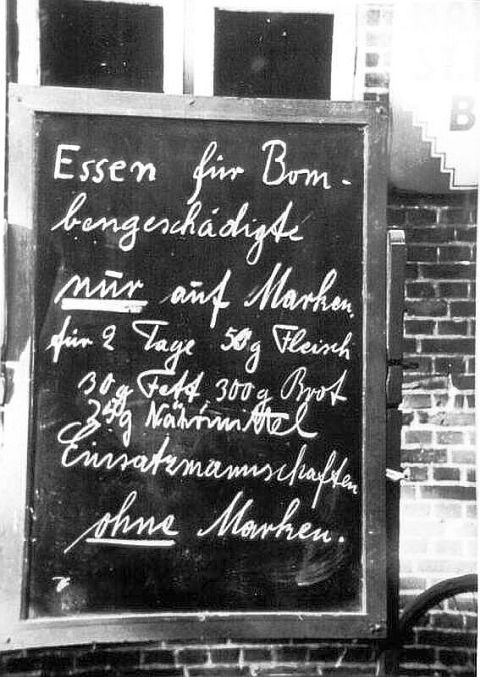 Essen für Bom-
bengeschädigte
nur auf Marken.
für 2 Tage 50g Fleisch
30g Fett 300g Brot
25g Nährmittel
Einsatzmannschaften
ohne Marken.
B